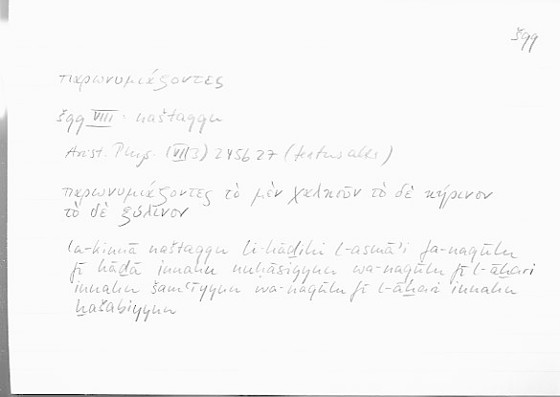 šqq
παρωνυμιάζοντες
šqq VIII: naštaqqu
Arist. Phys. (VII 3) 245b27 (textus alter)
παρωνυμιάζοντες τὸ μὲν χαλκοῦν τὸ δὲ κήρινον
τὸ δὲ ξύλινον
lākinnā naštaqqu li-hāḏihi l-asmāʾi fa-naqūlu
fī hāḏā innahu nuḥāsiyyun wa-naqūlu fī l-āḫari
innahu šamʿiyyun wa-naqūlu fī l-āḫari innahu
ḫašabiyyun